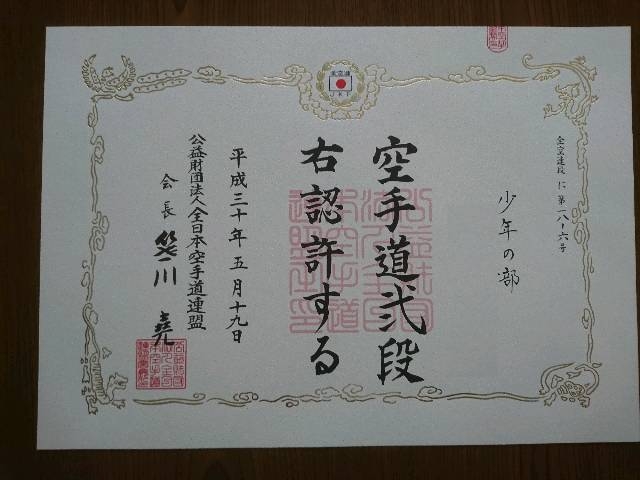 全空連段 に 第一八ー六号
少年の部
空手道弐段
右認許する
平成三十年五月十九日
公益財団法人全日本空手道連盟
会長 笹川 堯
全空連
JKF